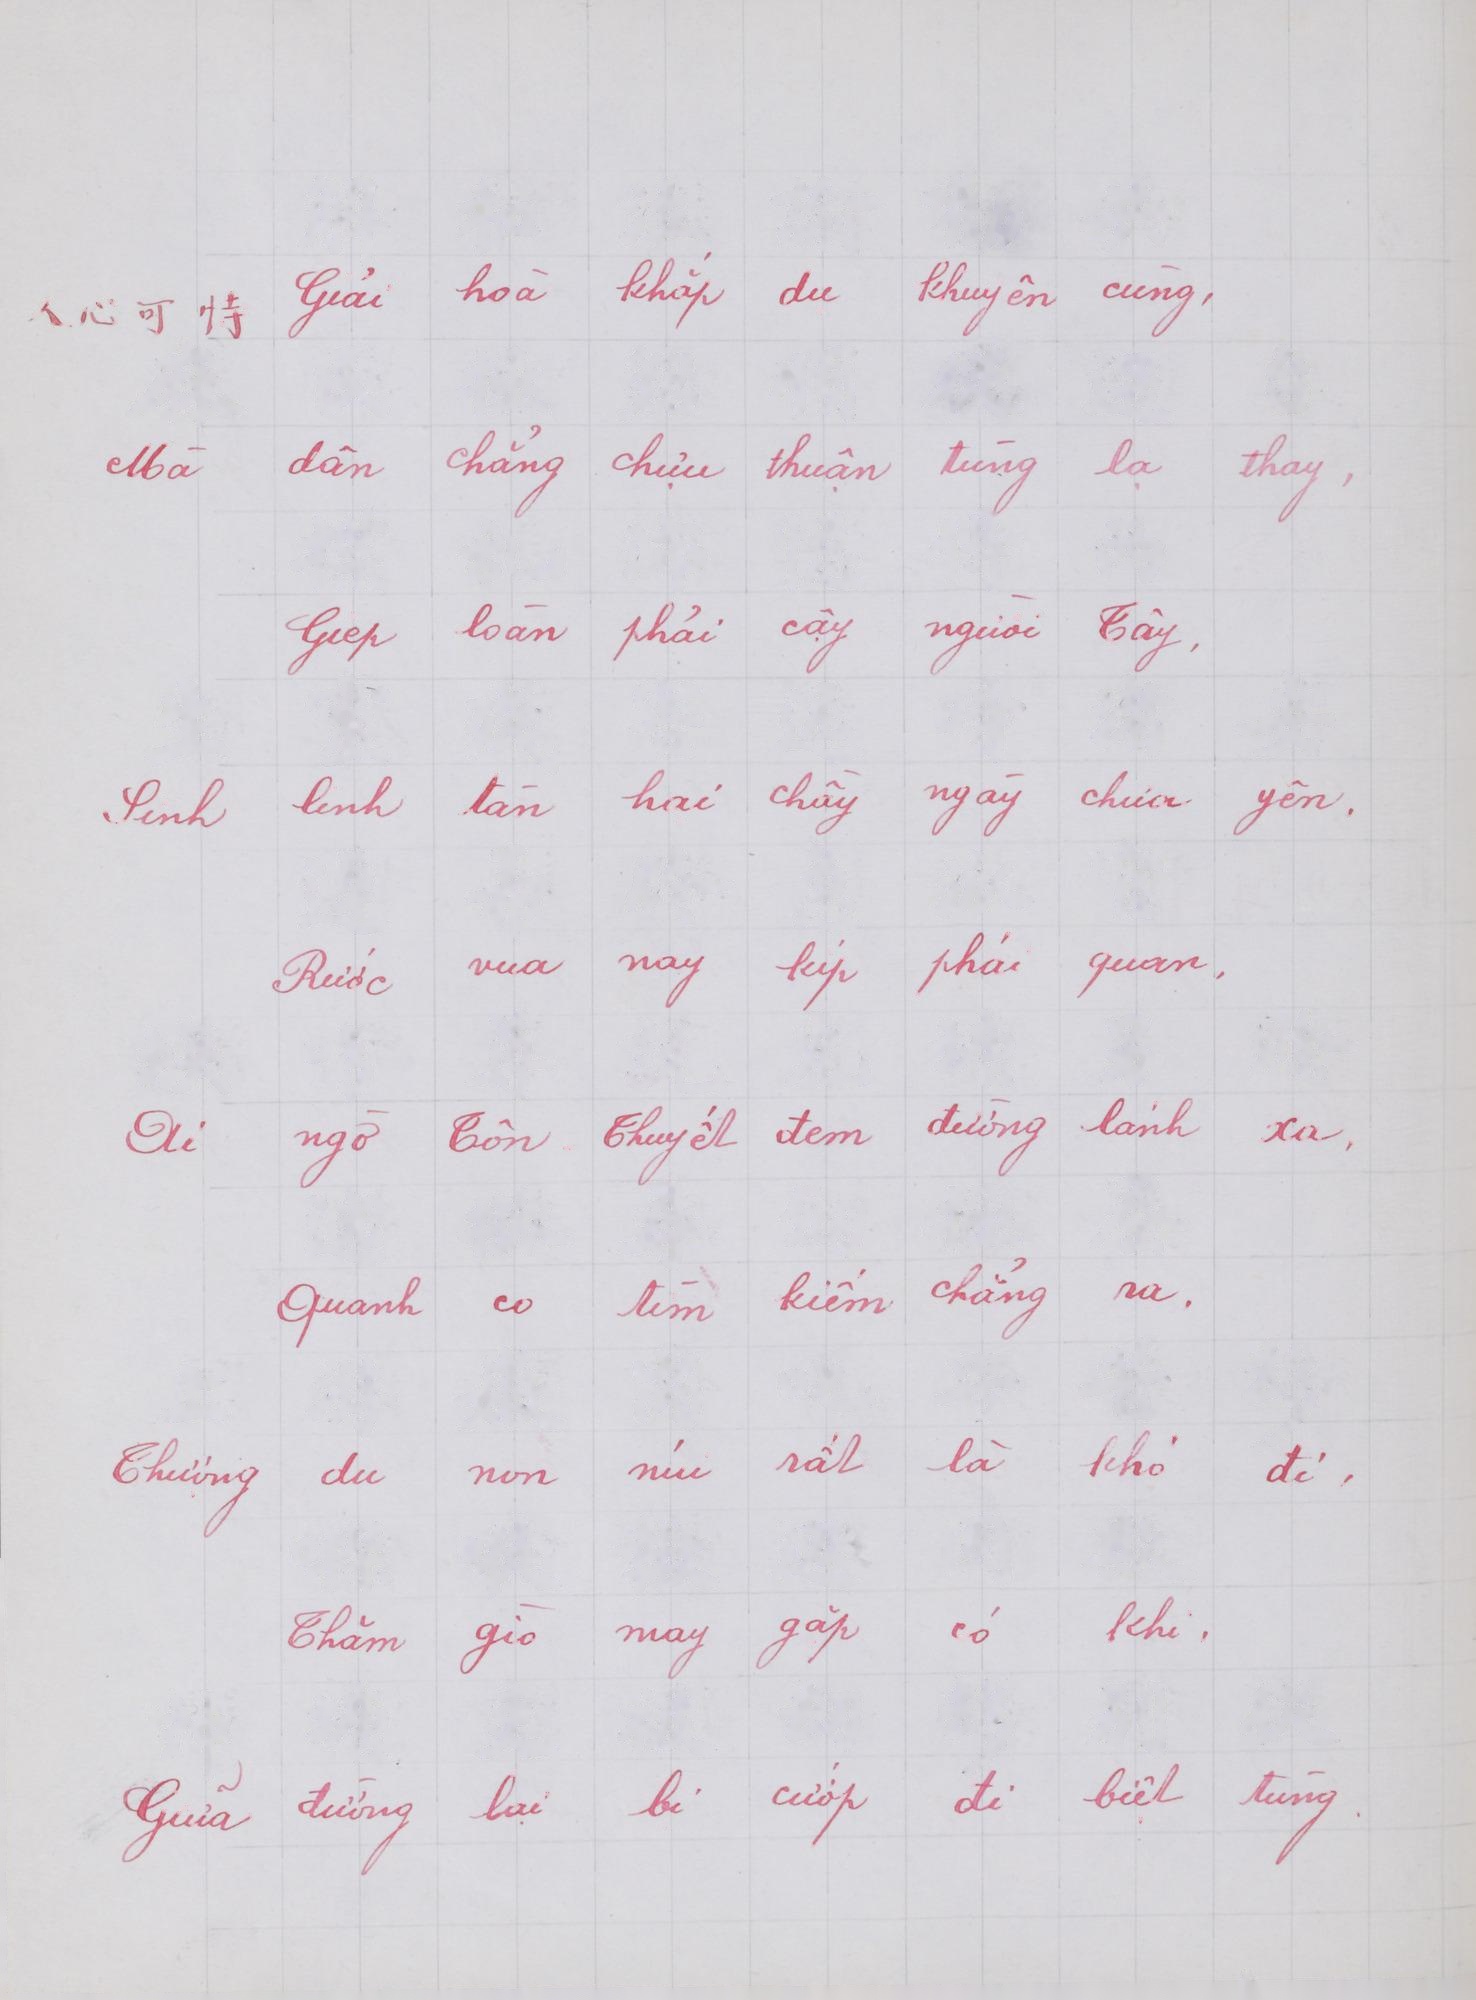 人心可恃
Giải hoà khắp dụ khuyên cùng,
Mà dân chẳng chịu thuận tùng lạ thay,
Giẹp loàn phải cậy người Tây,
Sinh linh tàn hại chầy ngày chưa yên.
Rước vua nay kíp phái quan,
Ai ngờ Tôn Thuyết đem đường lánh xa,
Quanh co tìm kiếm chẳng ra.
Thượng du non núi rất là khó đi,
Thăm giò may gặp có khi.
Giữa đường lại bị cướp đi biệt tùng.